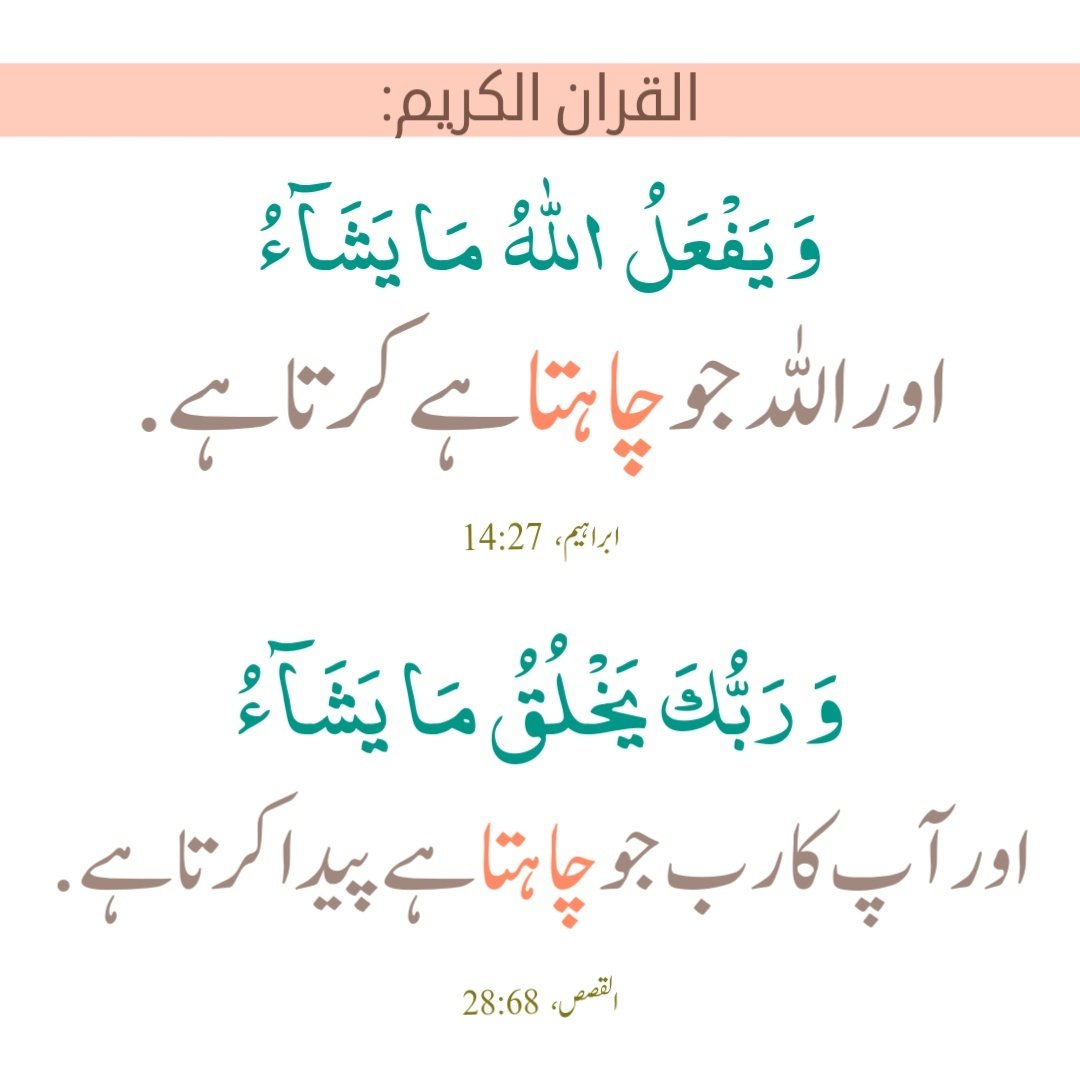 القران الكريم:
وَ يَفْعَلُ اللّٰهُ مَا يَشَآءُ
اور اللّٰہ جو چاہتا ہے کرتا ہے۔
ابراہیم، 14:27
وَ رَبُّكَ یَخْلُقُ مَا یَشَآءُ
اور آپ کا رب جو چاہتا ہے پیدا کرتا ہے۔
القصص، 28:68